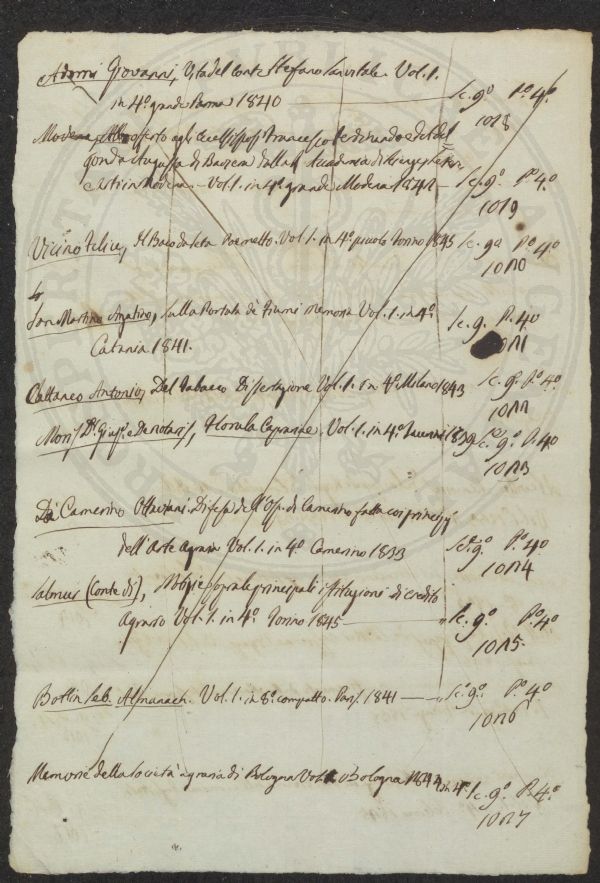 Adorni Giovanni, Vita del Conte Stefano Sanvitale. Vol. 1.
in 4º grande Parma 1840 Sc. 9º Pº. 4º.
1018
Modena, Albo offerto agli Eccellssi Sposi Francesco Ferdinando ed Adel
gonda Augusta di Baviera dalla R. Accademia di Scienze Lettere
e Arti in Modena. Vol. 1. in 4º grande Modena 1842 Sc. 9º Pº. 4º.
1019
Vicino Felice, Il Baco da seta Poemetto. Vol. 1. in 4º piccolo Torino 1845 Sc. 9º Pº 4º
10110
San Martino Agatino, Sulla Portata de' fiumi Memoria Vol. 1. in 4º. Sc. 9. P. 4º
Catania 1841. 10111
Cattaneo Antonio, Del tabacco Dissertazione Vol. 1. in 4º. Milano 1843 Sc. 9º. Pº. 4º.
10112
Vol. 1. in 4º. 1839 Sc. 9º. P. 4º
10113
Da Camerino Ottaviani. Difesa dell' di Camerino fatta coi principj
dell'Arte Agraria Vol. 1. in 4º Camerino 1833 Sc. 9º. Pº. 4º
10114
Salmur (Conte di), Notizie sopra le principali istituzioni di credito
Agrario Vol. 1. in 4º. Torino 1845 Sc. 9º. Pº. 4º
10115.
Bottin Seb. Almanach. Vol. 1. in 8º compatto. Parj. 1841 Sc. 9º. Pº. 4º
10116
Memorie della società agraria di Bologna Vol. 1 Bologna 1844 in 4º Sc. 9º. P. 4º.
10117